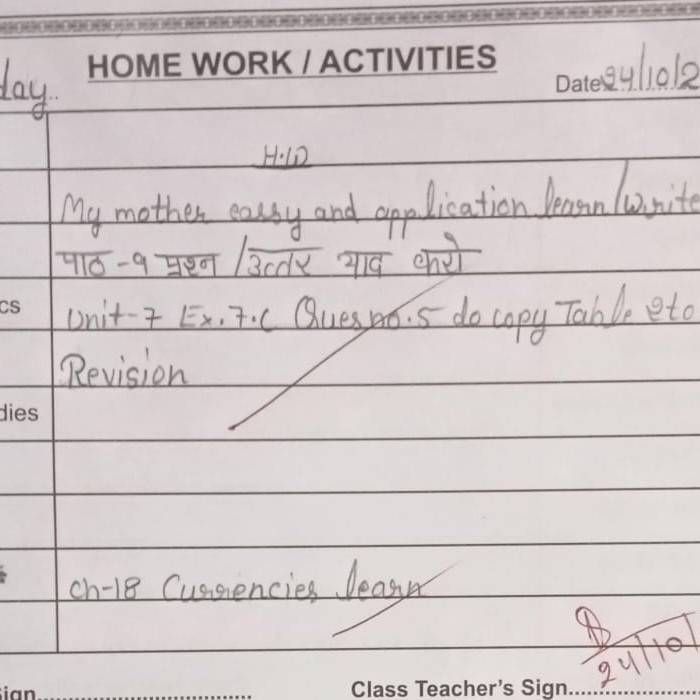 HOME WORK / ACTIVITIES
day.. Date 24/10/2
H.W
My mother eassy and application learn/write
पाठ -9 प्रश्न /उत्तर याद करो
cs Unit-7 Ex. 7.C Ques no. 5 do copy Table 2to
Revision
dies
Ch-18 Currencies learn
24/10/
Sign........................... Class Teacher's Sign...............